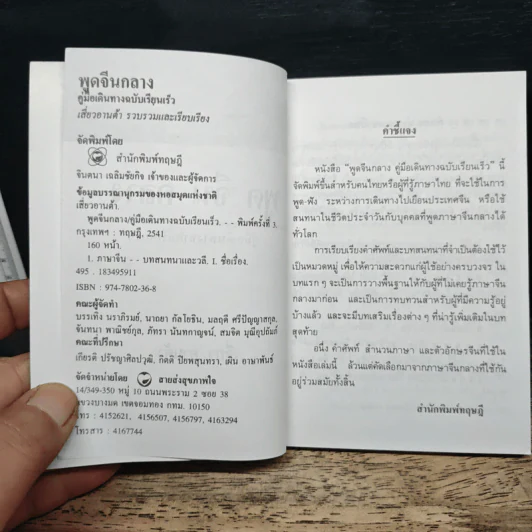 พูดจีนกลาง
คู่มือเดินทางฉบับเรียนเร็ว
เสี่ยวอานต้า รวบรวมและเรียบเรียง
จัดพิมพ์โดย
สำนักพิมพ์ทฤษฎี
จินตนา เฉลิมชัยกิจ เจ้าของและผู้จัดการ
ข้อมูลบรรณานุกรมของหอสมุดแห่งชาติ
เสี่ยวอานต้า.
พูดจีนกลาง/คู่มือเดินทางฉบับเรียนเร็ว. - - พิมพ์ครั้งที่ 3.
กรุงเทพฯ : ทฤษฎี, 2541.
160 หน้า.
1. ภาษาจีน - - บทสนทนาและวลี. I. ชื่อเรื่อง.
495 . 183495911
ISBN : 974-7802-36-8
คณะผู้จัดทำ
บรรเทิง นราภิรมย์, นาถยา กัลโยธิน, มลฤดี ศรีปัญญาสกุล,
จันทนา พาณิชย์กุล, ภัทรา นันทกาญจน์, สมจิต มุณีอุปถัมภ์
คณะที่ปรึกษา
เกียรติ ปรัชญาศิลปวุฒิ, กิตติ ปิยพสุนทรา, เผิน อาษาพันธ์
จัดจำหน่ายโดย สายส่งสุขภาพใจ
14/349-350 หมู่ 10 ถนนพระราม 2 ซอย 38
แขวงบางมด เขตจอมทอง กทม. 10150
โทร : 4152621, 4156507, 4156797, 4163294
โทรสาร : 4167744
คำชี้แจง
หนังสือ "พูดจีนกลาง คู่มือเดินทางฉบับเรียนเร็ว" นี้
จัดพิมพ์ขึ้นสำหรับคนไทยหรือผู้ที่รู้ภาษาไทย ที่จะใช้ในการ
พูด-ฟัง ระหว่างการเดินทางไปเยือนประเทศจีน หรือใช้
สนทนาในชีวิตประจำวันกับบุคคลที่พูดภาษาจีนกลางได้
ทั่วโลก
การเรียบเรียงคำศัพท์และบทสนทนาที่จำเป็นต้องใช้ไว้
เป็นหมวดหมู่ เพื่อให้ความสะดวกแก่ผู้ใช้อย่างครบวงจร ใน
บทแรก ๆ จะเป็นการวางพื้นฐานให้กับผู้ที่ไม่เคยรู้ภาษาจีน
กลางมาก่อน และเป็นการทบทวนสำหรับผู้ที่มีความรู้อยู่
บ้างแล้ว และจะมีบทเสริมเรื่องต่าง ๆ ที่น่ารู้เพิ่มเติมในบท
สุดท้าย
อนึ่ง คำศัพท์ สำนวนภาษา และตัวอักษรจีนที่ใช้ใน
หนังสือเล่มนี้ ล้วนแต่คัดเลือกมาจากภาษาจีนกลางที่ใช้กัน
อยู่ร่วมสมัยทั้งสิ้น
สำนักพิมพ์ทฤษฎี